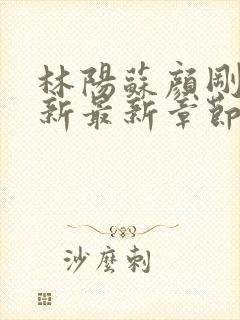 林陽蘇顔剛
新最新章節
沙麼刺